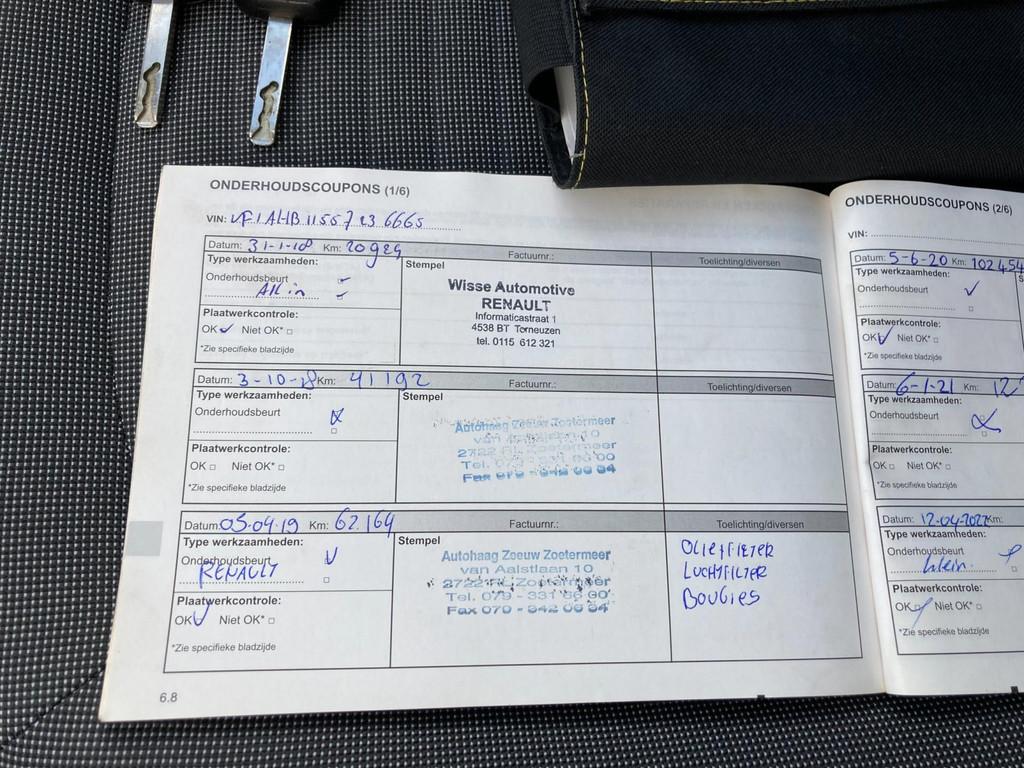 ONDERHOUDSCOUPONS (1/6)
VIN: VF1AHB11557236665
Datum: 31-1-18 Km: 20929 Factuurnr.: Toelichting/diversen
Type werkzaamheden:
Onderhoudsbeurt
All in
Plaatwerkcontrole:
OK ✓ Niet OK* □
*Zie specifieke bladzijde
Stempel
Wisse Automotive
RENAULT
Informaticastraat 1
4538 BT Terneuzen
tel. 0115 612 321
Datum: 3-10-18 Km: 41192 Factuurnr.: Toelichting/diversen
Type werkzaamheden:
Onderhoudsbeurt
Plaatwerkcontrole:
OK □ Niet OK* □
*Zie specifieke bladzijde
Stempel
Autohaag Zeeuw Zoetermeer
van Aalstlaan 10
Datum: 05-04-19 Km: 62.164 Factuurnr.: Toelichting/diversen
Type werkzaamheden:
Onderhoudsbeurt ✓
RENAULT
Plaatwerkcontrole:
OK ✓ Niet OK* □
*Zie specifieke bladzijde
Stempel
Autohaag Zeeuw Zoetermeer
van Aalstlaan 10
Zoetermeer
OLIEFILTER
LUCHTFILTER
BOUGIES
6.8
ONDERHOUDSCOUPONS (2/6)
VIN:
Datum: 5-6-20 Km: 102454
Type werkzaamheden:
Onderhoudsbeurt ✓
Plaatwerkcontrole:
OK ✓ Niet OK* □
*Zie specifieke bladzijde
Datum: 6-1-21 Km:
Type werkzaamheden:
Onderhoudsbeurt
Plaatwerkcontrole:
OK □ Niet OK* □
*Zie specifieke bladzijde
Datum: 12-04-2022 Km:
Type werkzaamheden:
Onderhoudsbeurt
klein.
Plaatwerkcontrole:
OK Niet OK* □
*Zie specifieke bladzijde